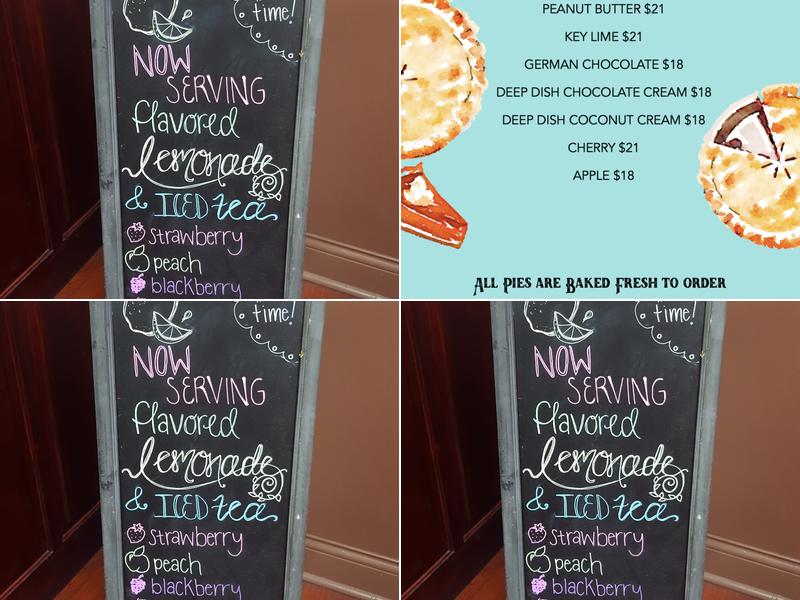 time!
NOW
SERVING
flavored
lemonade
& ICED tea
strawberry
peach
blackberry
PEANUT BUTTER $21
KEY LIME $21
GERMAN CHOCOLATE $18
DEEP DISH CHOCOLATE CREAM $18
DEEP DISH COCONUT CREAM $18
CHERRY $21
APPLE $18
ALL PIES ARE BAKED FRESH TO ORDER
time!
NOW
SERVING
flavored
lemonade
& ICED tea
strawberry
peach
blackberry
time!
NOW
SERVING
flavored
lemonade
& ICED tea
strawberry
peach
blackberry